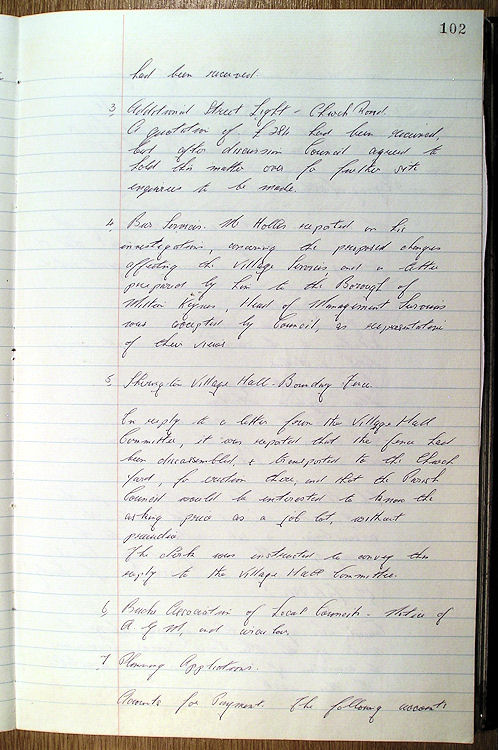 102
had been received.
3, Additional Street Light - Church Road.
A quotation of £284 had been received,
but after discussion Council agreed to
hold this matter over for further site
enquiries to be made.
4, Bus Services. Mr Hollis reported on his
investigations, concerning the proposed changes
affecting the Village Services, and a letter
prepared by him to the Borough of
Milton Keynes, Head of Management Services
was accepted by Council, as representative
of their views
5, Sherington Village Hall - Boundary Fence.
In reply to a letter from the Village Hall
Committee, it was reported that the fence had
been disassembled, & transported to the Church
Yard, for erection there, and that the Parish
Council would be interested to know the
asking price as a job lot, without
prejudice.
The Clerk was instructed to convey this
reply to the Village Hall Committee.
6, Bucks Association of Local Councils - Notice of
A.G.M, and circular.
7 Planning Applications.
Accounts for Payment. The following accounts